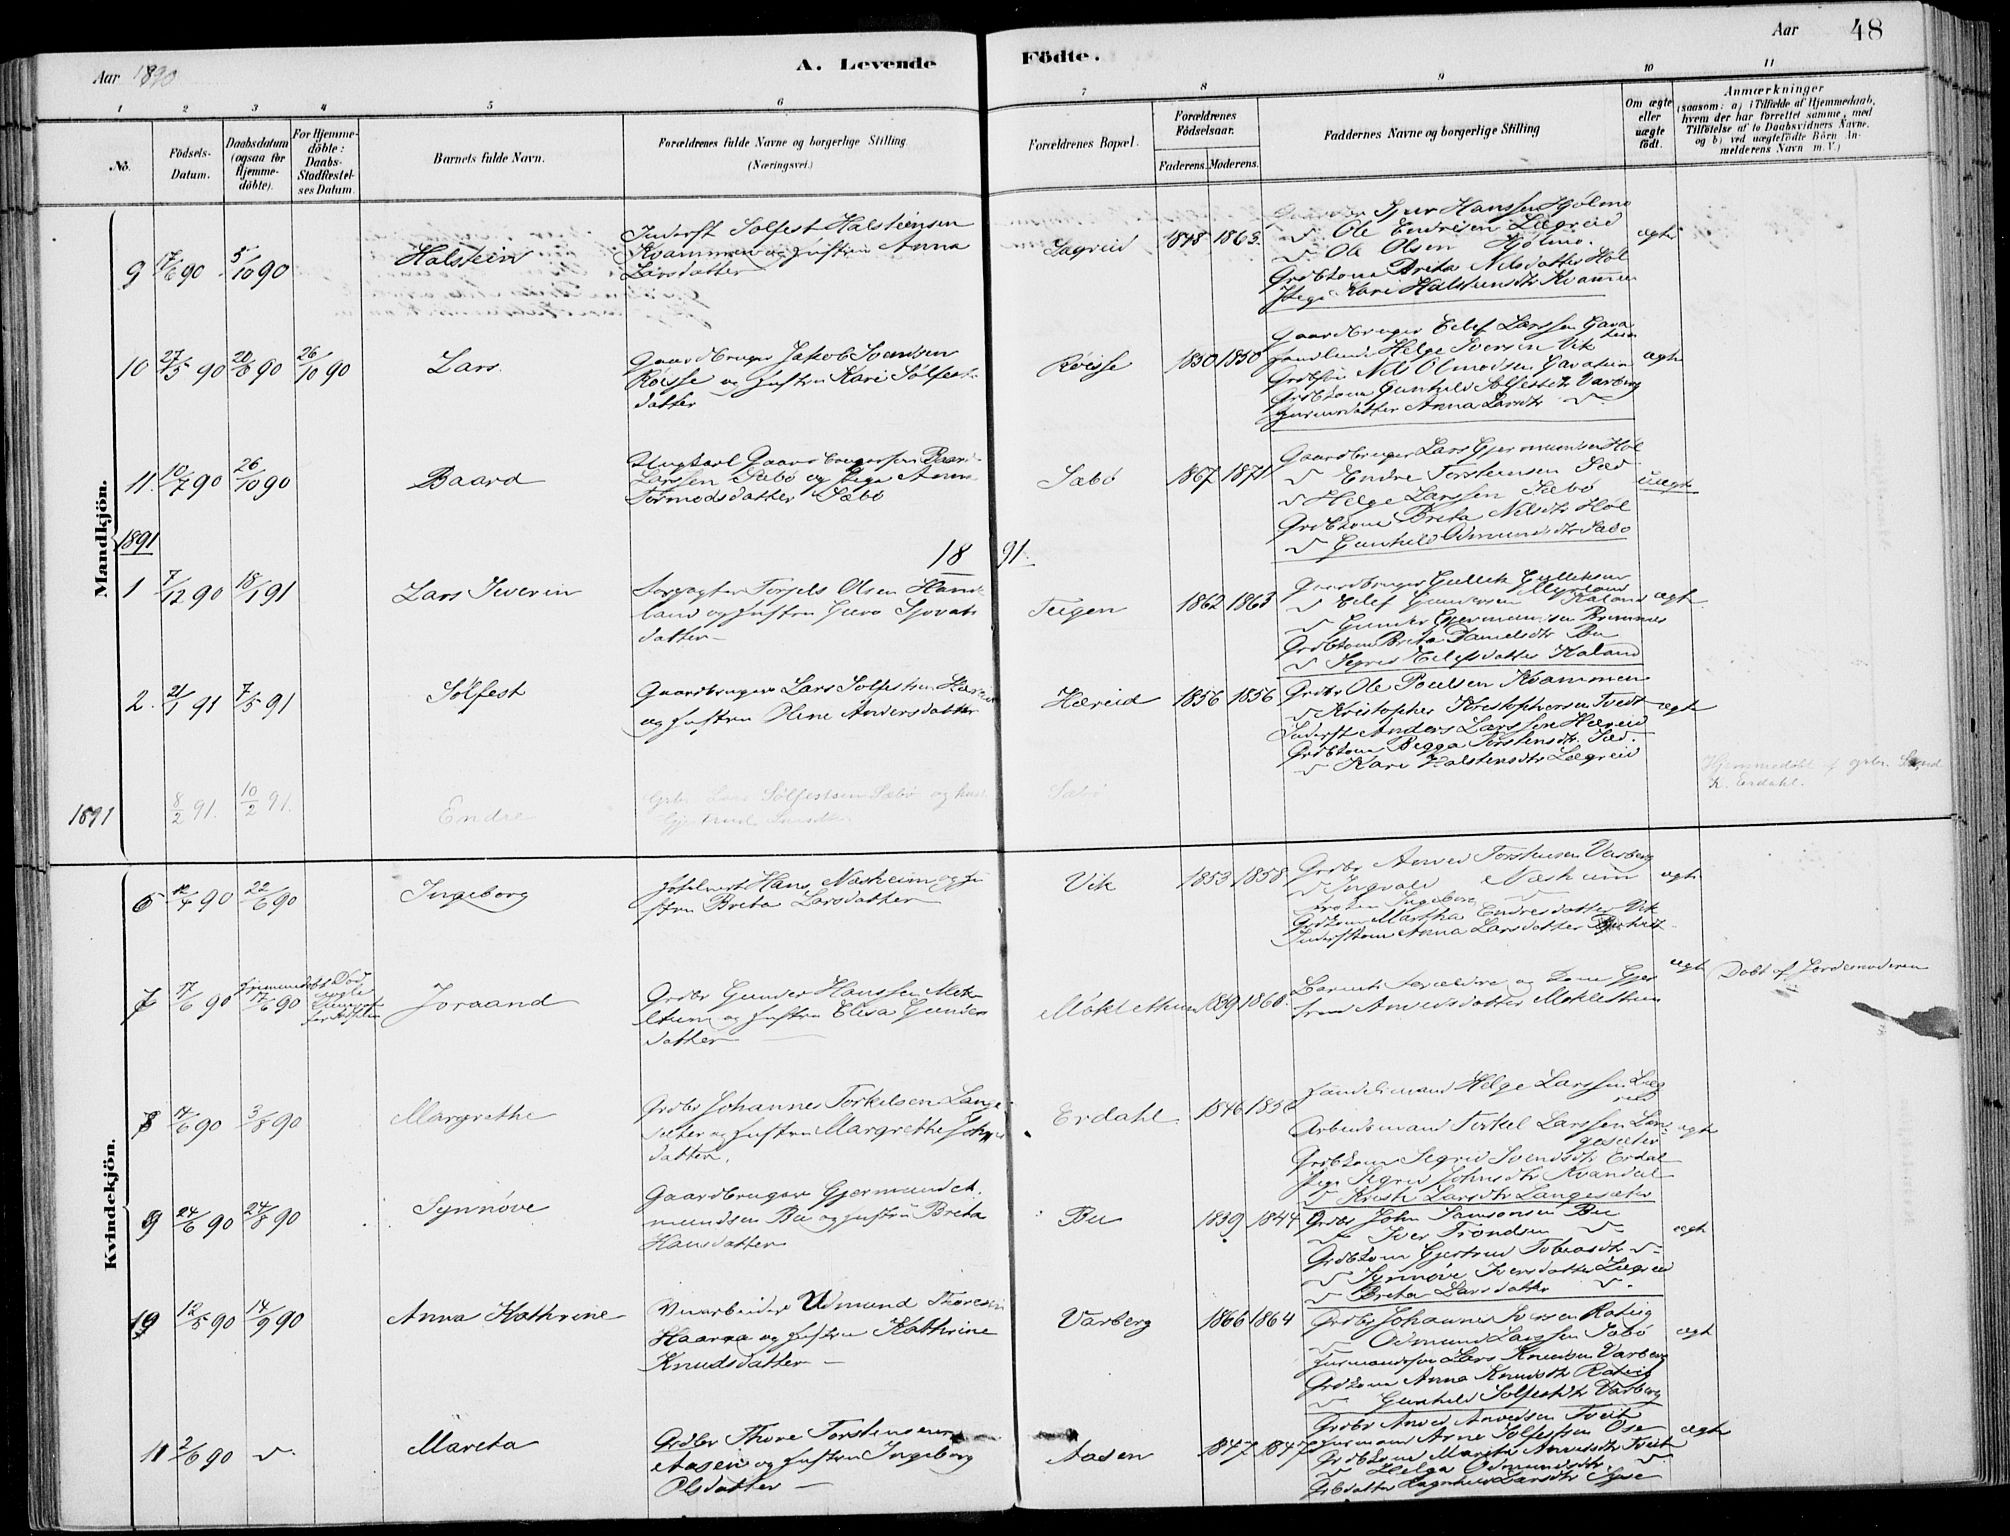 Aar 1890
A. Levende
Födte.
Aar
48
1 2 3 4 5 6 7 8 9 10 11
No.
Födsels-
Datum.
Daabsdatum
(ogsaa for
Hjemme-
döbte).
For Hjemme-
döbte:
Daabs-
Stadfæstel-
ses Datum.
Barnets fulde Navn.
Forældrenes fulde Navne og borgerlige Stilling
(Næringsvei.)
Forældrenes Bopæl.
Forældrenes
Födselsaar.
Faderens. Moderens.
Faddernes Navne og borgerlige Stilling
Om ægte
eller
uægte
födt.
Anmærkninger
(saasom: a) i Tilfælde af Hjemmedaab,
hvem der har forrettet samme, med
Tilföielse af to Daabsvidners Navne,
og b) ved uægtefödte Börn An-
melderens Navn m. V.)
Mandkjön.
9 17/6 90 5/10 90
Halstein
Inderst Solfest Halsteinsen
Kvammen og Hustru Anna
Larsdatter
Lægreid
1848 1863.
Iver Hanssen Hjølmo
Ole Endresen Lægreid
Ole Olsen Hjølmo.
Grdbkone Brita Nilsdatter Hol
Pige Kari Halsteinsdtr Kvammen
ægte
10 27/5 90 20/6 90 26/10 90
Lars.
Gaardbruger Jakob Svendsen
Røisse og Hustru Kari Solfest-
datter
Røisse
1850 1850
Gaardbruger Eilef Larssen Gava
Handlende Helge Iversen Vik
Nils Olmodsen Gavalum
Grdbkone Gunhild Solfestdtr Varberg
Furumsdatter Anna Larsdtr
ægte
11. 10/7 90 26/10 90
Baard
Ungkarl Gaardbrugersøn Baard
Larssen Sæbø og Pige Anna
Tormodsdatter Sæbø
Sæbø
1867 1871
Gaardbruger Lars Gjermundsen Hol
Endre Torsteinsen Sæd
Helge Larssen Sæbø
Grdbkone Brita Nilsdtr Hol
Gunhild Odmundsdtr Sæbø
uægte
1891
18 91.
1 7/12 90 18/1 91
Lars Severin
Torjels Olsen Hand-
land og Hustru Guro Sjovats
datter
Teigen
1862 1863
Gaardbruger Gullik Gulliksen
Myrland
Eilef Gundersen Kaland
Gunder Gjermundsen Brimnes
Grdbkone Brita Danielsdtr Bu
Sigrid Eilefsdatter Kaland
ægte
2. 21/1 91 7/5 91
Solfest
Gaardbruger Lars Solfestsen Hæreid
og Hustru Oline Andersdatter
Hæreid
1856 1856
Grdbr Ole Poulsen Kvammen
Kristopher Kristophersen Tveit
Inderst Anders Larssen Hæreid
Grdbkone Begga Torstensdtr. Sæd.
Kari Halstensdtr Lægreid
ægte
1891
8/2 91. 10/2 91.
Endre
Grbr Lars Solfestsen Sæbø og hust.
Gjertrud Larsdtr.
Sæbø
Hjemmedøbt af grbr. Svend
K. Erdahl.
Kvindekjön.
6 12/4 90 22/6 90
Ingeborg
Hans Næsheim og Hu
stru Brita Larsdatter
Vik
1853 1858.
Grdbr Amved Torsteinsen Varberg
Ingvald Næsheim
Ingeborg
Grdkone Martha Endresdatter Vik
Inderstkone Anna Larsdatter
ægte
7 17/6 90 17/6 90
Joraand
Grdbr Gunder Hanssen Møk-
lethun og Hustru Elisa Gunders
datter
Møklethun
1839 1860.
Barnets Forældre og Kone Gjer
Amvedsdatter Møklethun
ægte
Døbt af Jordemoderen
8 17/6 90 3/8 90
Margrethe
Grdbr Johannes Torkelsen Lange
sæter og Hustru Margrethe Johns
datter.
Erdahl
1846 1856
Handelsmand Helge Larssen Læg
reid
Arbeidsmand Torkel Larssen Lan-
gesæter
Grdbkone Sigrid Svendsdtr Erdal
Pige Sigrid Johnsdtr Kvandal
Kristi Larsdtr Langesæter
ægte
9 24/6 90 24/8 90
Synnøve
Gaardbruger Gjermund A-
mundsen Bu og Hustru Brita
Hansdatter
Bu
1839 1844
Grdbr John Samsonsen Bu
Iver Trondsen
Grdbkone Gjertrud Tobiasdtr
Synnøve Iversdatter Lægreid
Brita Larsdatter
ægte
10 12/5 90 14/9 90
Anna Kathrine
Veiarbeider Udmund Thoresen
Haarra og Hustru Kathrine
Knudsdatter
Varberg
1866 1864
Grdbr Johannes Iversen Rateig
Odmund Larssen Sæbø
Furmandssøn Lars Knudsen Varberg
Grdkone Anna Knudsdtr Rateig
Gunhild Solfestdtr Varberg
ægte
11 2/6 90
Mareta
Grdbr Thore Torsteinsen
Aasen og Hustru Ingeborg
Olsdatter
Aasen
1847 1847
Grdbr Amved Amvedsen Tveit
Furmand Arne Solfestsen Ose
Grdbkone Maretha Amvedsdtr Tveit
Helga Odmundsdtr
Grdbdatter Ragnhild Larsdtr Syse
ægte